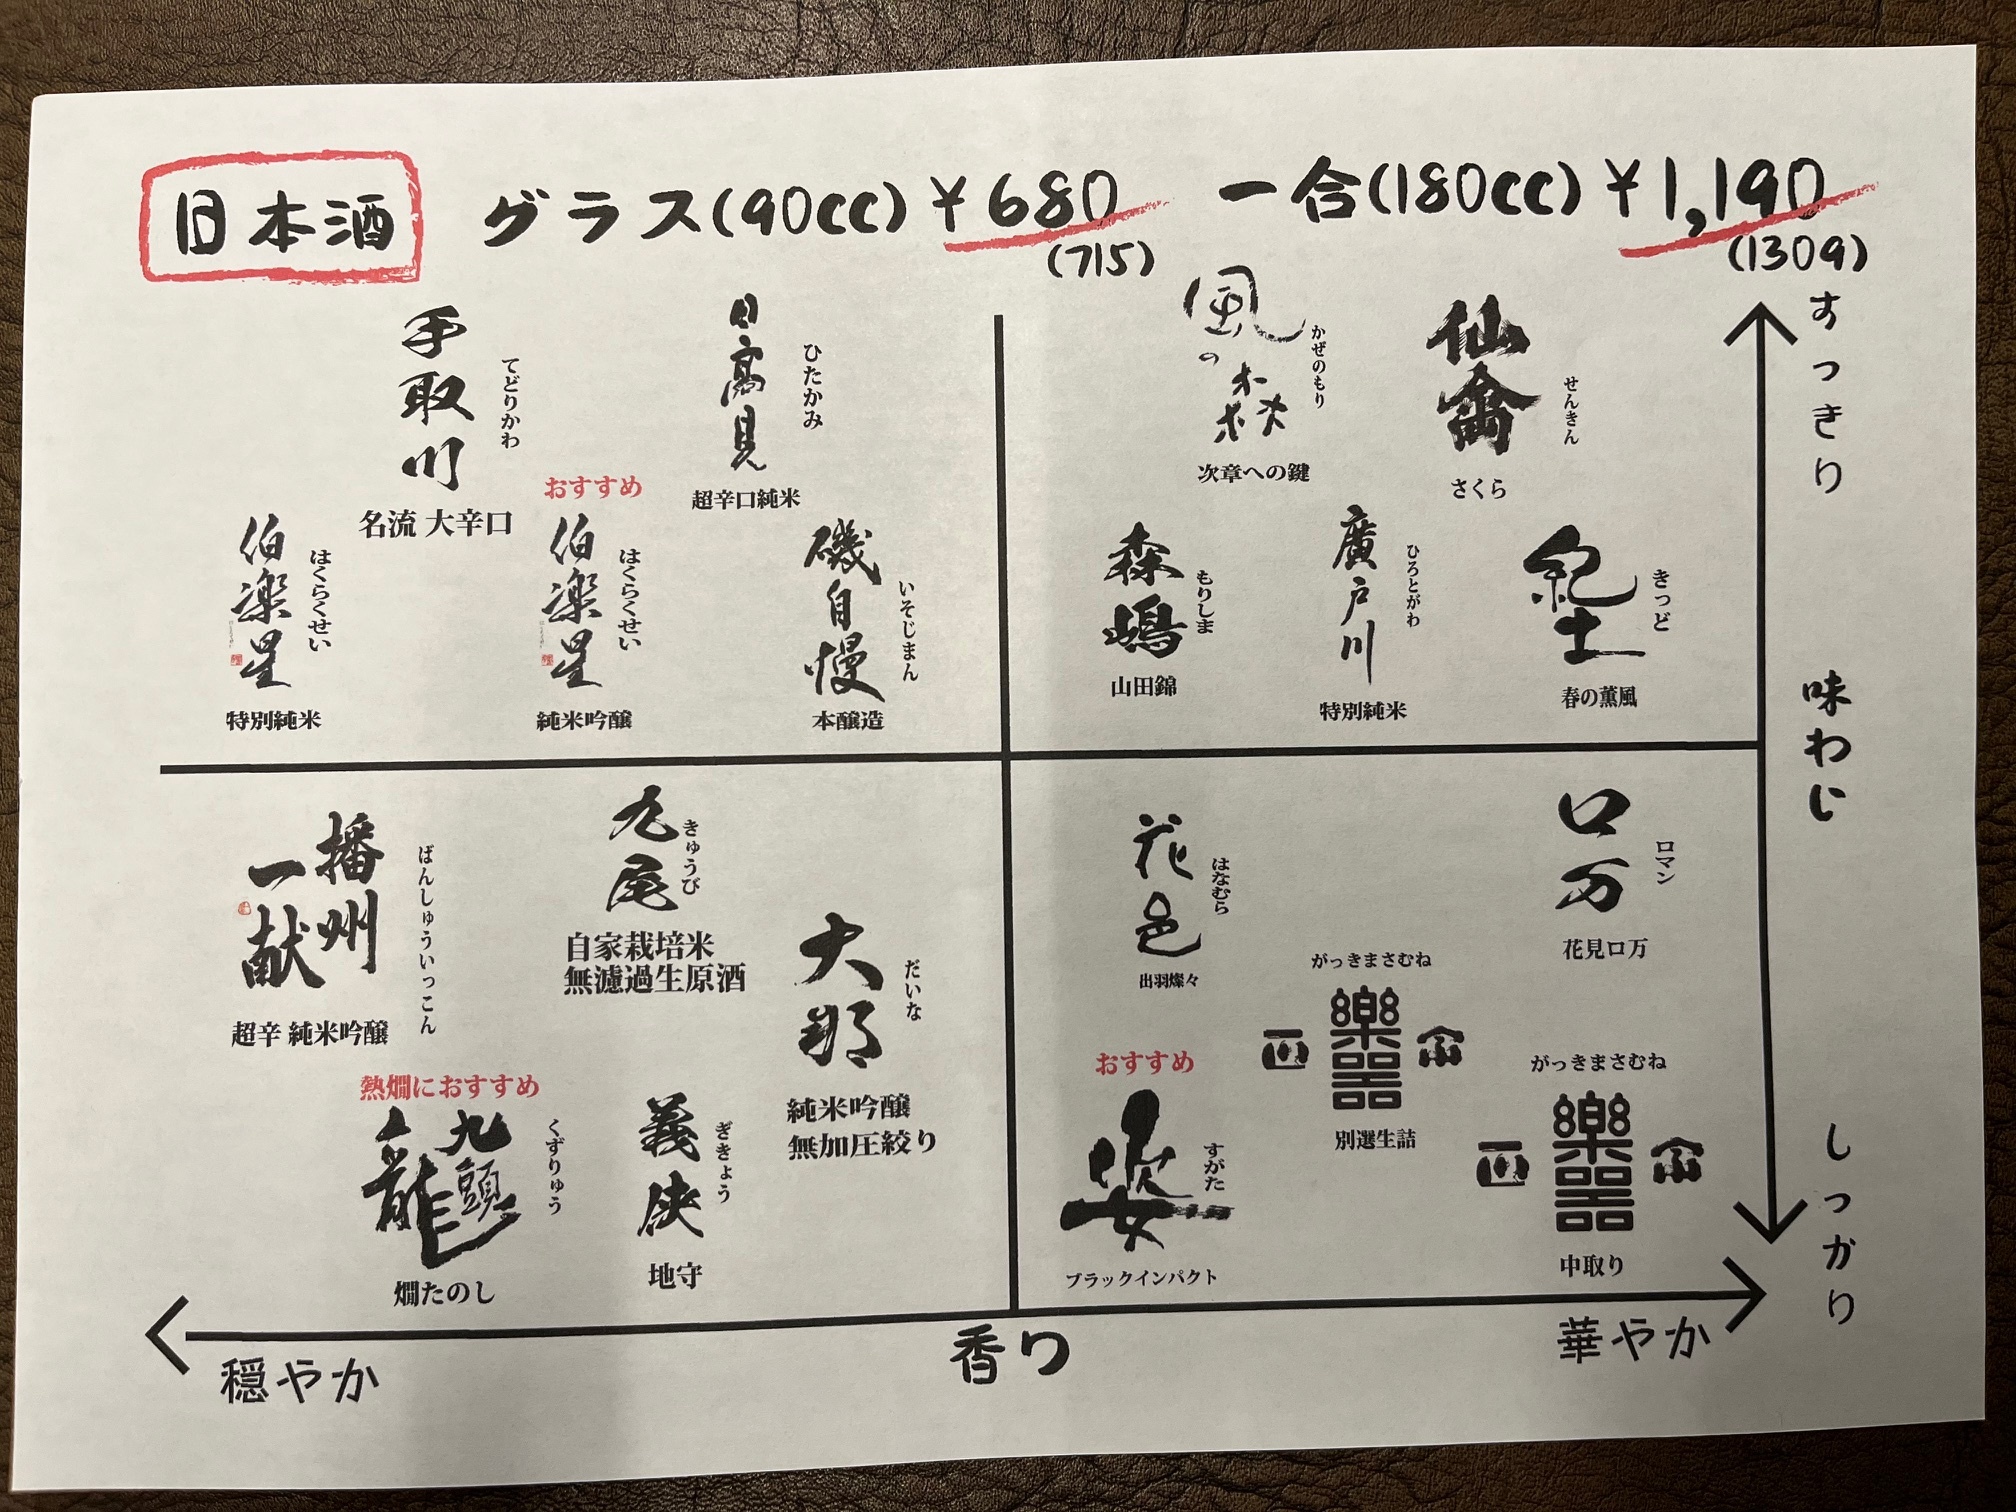 日本酒 グラス(90cc) ¥680 一合(180cc) ¥1,190
(715) (1309)
手取川
てどりかわ
名流 大辛口
日高見
ひたかみ
超辛口純米
伯楽星
はくらくせい
特別純米
おすすめ
伯楽星
はくらくせい
純米吟醸
磯自慢
いそじまん
本醸造
風の森
かぜのもり
次章への鍵
仙禽
せんきん
さくら
森嶋
もりしま
山田錦
廣戸川
ひろとがわ
特別純米
紀土
きっど
春の薫風
播州
一献
ばんしゅういっこん
超辛 純米吟醸
九尾
きゅうび
自家栽培米
無濾過生原酒
大那
だいな
純米吟醸
無加圧絞り
熱燗におすすめ
九頭
龍
くずりゅう
燗たのし
義侠
ぎきょう
地守
花邑
はなむら
出羽燦々
ロ万
ロマン
花見ロ万
がっきまさむね
樂器
正宗
別選生詰
がっきまさむね
樂器
正宗
中取り
おすすめ
姿
すがた
ブラックインパクト
すっきり
味わい
しっかり
穏やか
香り
華やか